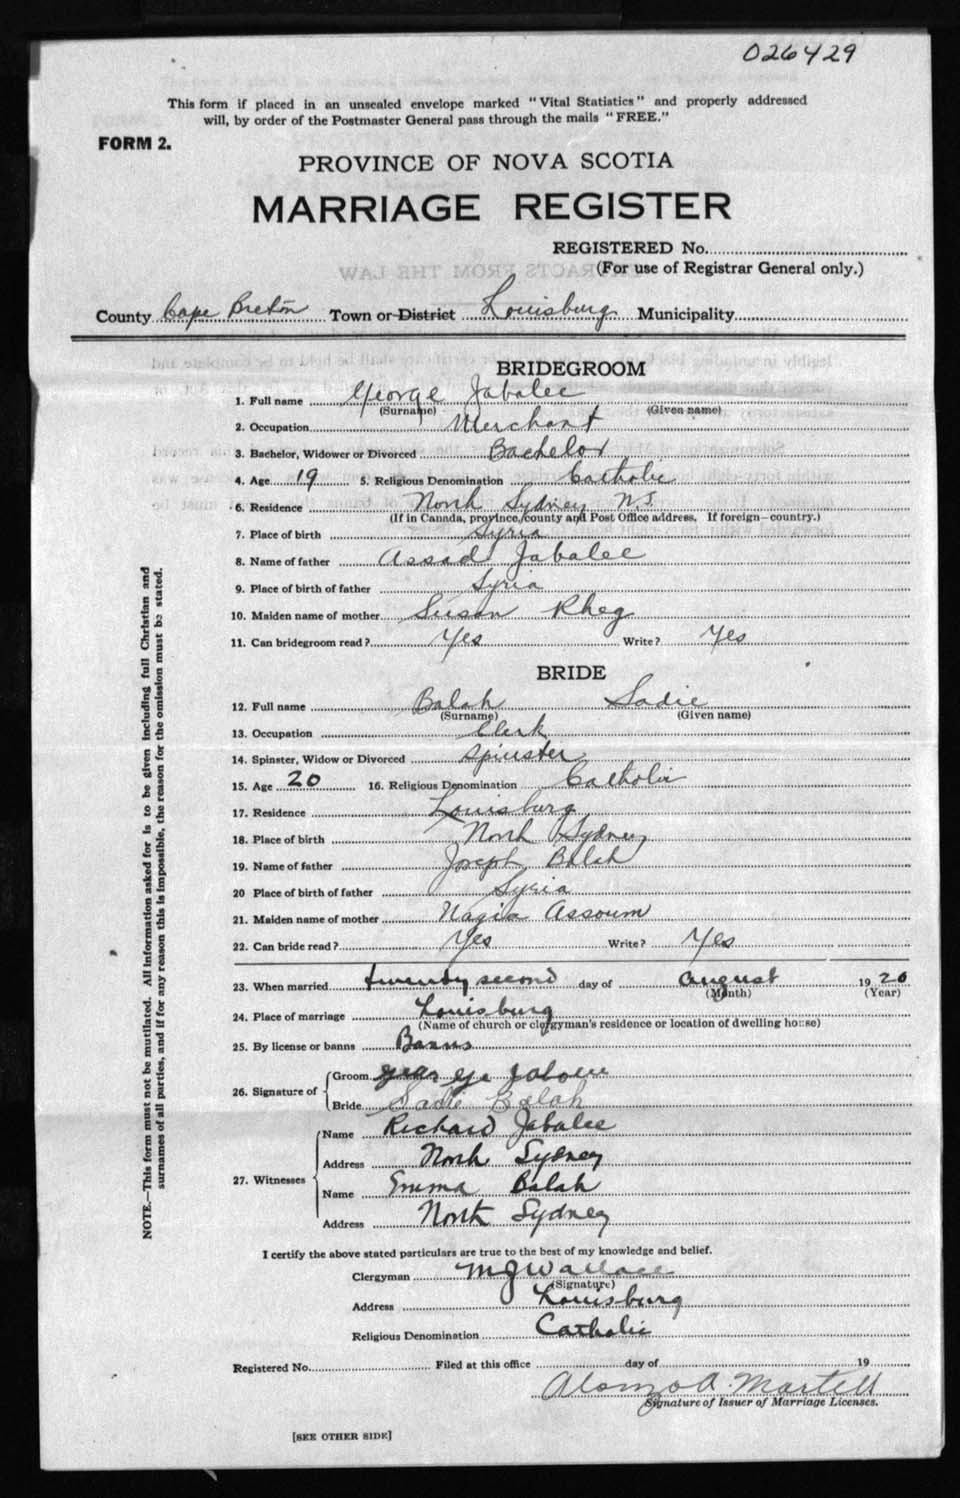 026429
This form if placed in an unsealed envelope marked "Vital Statistics" and properly addressed
will, by order of the Postmaster General pass through the mails "FREE."
FORM 2.
PROVINCE OF NOVA SCOTIA
MARRIAGE REGISTER
REGISTERED No.
(For use of Registrar General only.)
County Cape Breton Town or District Louisburg Municipality
BRIDEGROOM
1. Full name George Jabalee
(Surname) (Given name)
2. Occupation Merchant
3. Bachelor, Widower or Divorced Bachelor
4. Age 19 5. Religious Denomination Catholic
6. Residence North Sydney N.S.
(If in Canada, province, county and Post Office address. If foreign—country.)
7. Place of birth Syria
8. Name of father Assad Jabalee
9. Place of birth of father Syria
10. Maiden name of mother Susan Rheg
11. Can bridegroom read? Yes Write? Yes
BRIDE
12. Full name Balah Sadie
(Surname) (Given name)
13. Occupation Clerk
14. Spinster, Widow or Divorced Spinster
15. Age 20 16. Religious Denomination Catholic
17. Residence Louisburg
18. Place of birth North Sydney
19. Name of father Joseph Balah
20 Place of birth of father Syria
21. Maiden name of mother Nazia Assoum
22. Can bride read? Yes Write? Yes
23. When married twenty second day of August 1920
(Month) (Year)
24. Place of marriage Louisburg
(Name of church or clergyman's residence or location of dwelling house)
25. By license or banns Banns
26. Signature of Groom George Jabalee
Bride Sadie Balah
27. Witnesses Name Richard Jabalee
Address North Sydney
Name Emma Balah
Address North Sydney
I certify the above stated particulars are true to the best of my knowledge and belief.
Clergyman M J Wallace
(Signature)
Address Louisburg
Religious Denomination Catholic
Registered No. Filed at this office day of 19
Alonzo A. Martell
Signature of Issuer of Marriage Licenses.
[SEE OTHER SIDE]
NOTE.—This form must not be mutilated. All information asked for is to be given including full Christian and
surnames of all parties, and if for any reason this is impossible, the reason for the omission must be stated.